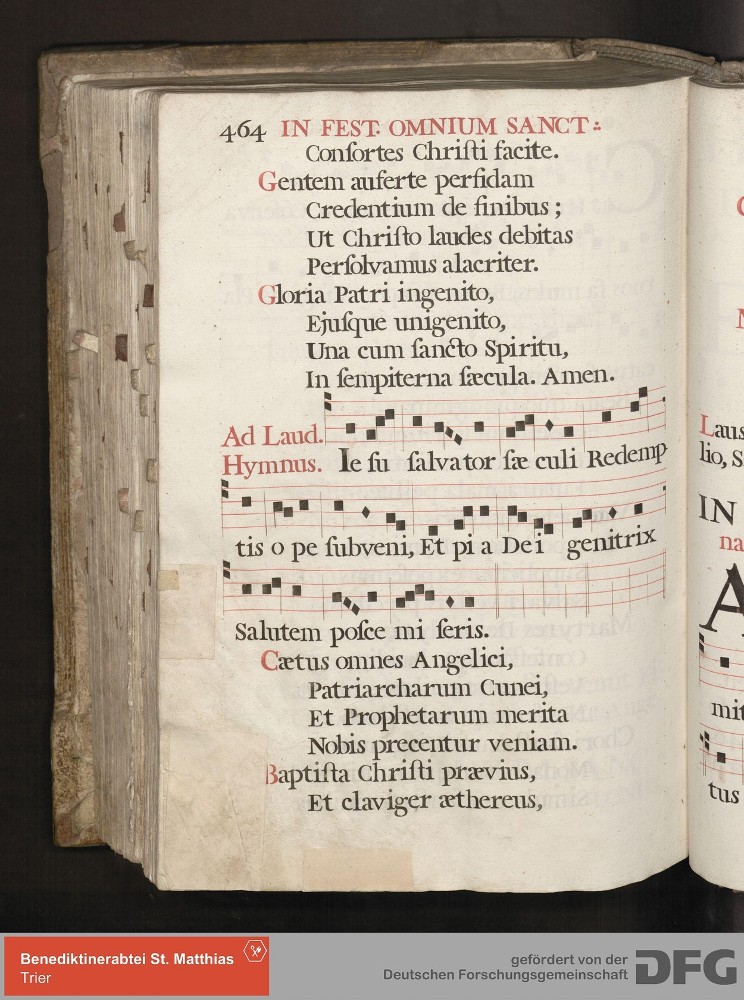 464 IN FEST. OMNIUM SANCT:.
Conſortes Chriſti facite.
Gentem auferte perfidam
Credentium de finibus;
Ut Chriſto laudes debitas
Perſolvamus alacriter.
Gloria Patri ingenito,
Ejuſque unigenito,
Una cum ſancto Spiritu,
In ſempiterna ſæcula. Amen.
Ad Laud.
Hymnus. Ie ſu ſalvator ſæ culi Redemp
tis o pe ſubveni, Et pi a De i genitrix
Salutem poſce mi ſeris.
Cætus omnes Angelici,
Patriarcharum Cunei,
Et Prophetarum merita
Nobis precentur veniam.
Baptiſta Chriſti prævius,
Et claviger æthereus,
Laus
lio, S
IN
na
A
mit
tus
Benediktinerabtei St. Matthias
Trier
gefördert von der
Deutschen Forschungsgemeinschaft DFG